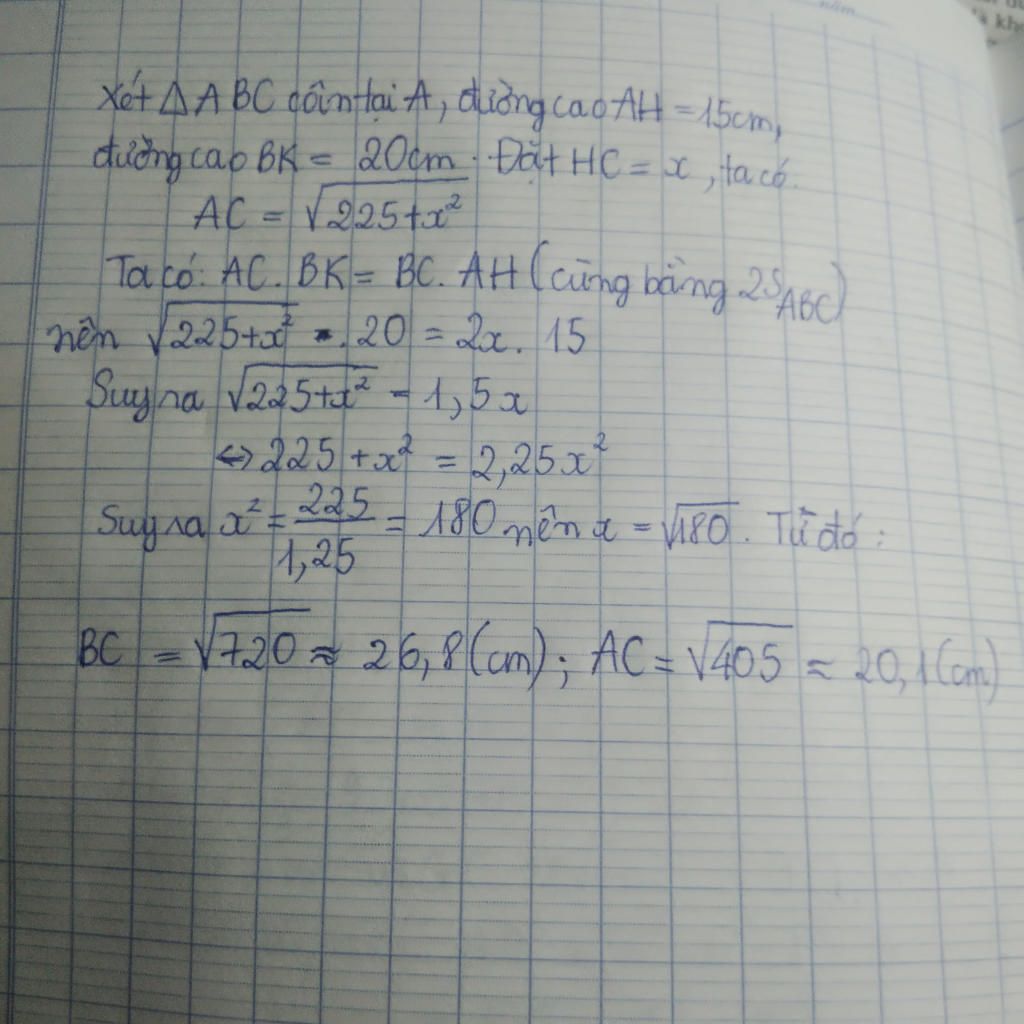 năm
Xét Δ ABC cân tại A, đường cao AH = 15cm,
đường cao BK = 20cm. Đặt HC = x, ta có.
AC = √225+x²
Ta có: AC. BK = BC. AH (cùng bằng 2S_ABC)
nên √225+x² . 20 = 2x. 15
Suy ra √225+x² = 1,5x
<-> 225 + x² = 2,25x²
Suy ra x² = 225/1,25 = 180 nên x = √180. Từ đó:
BC = √720 ≈ 26,8 (cm); AC = √405 ≈ 20,1(cm)